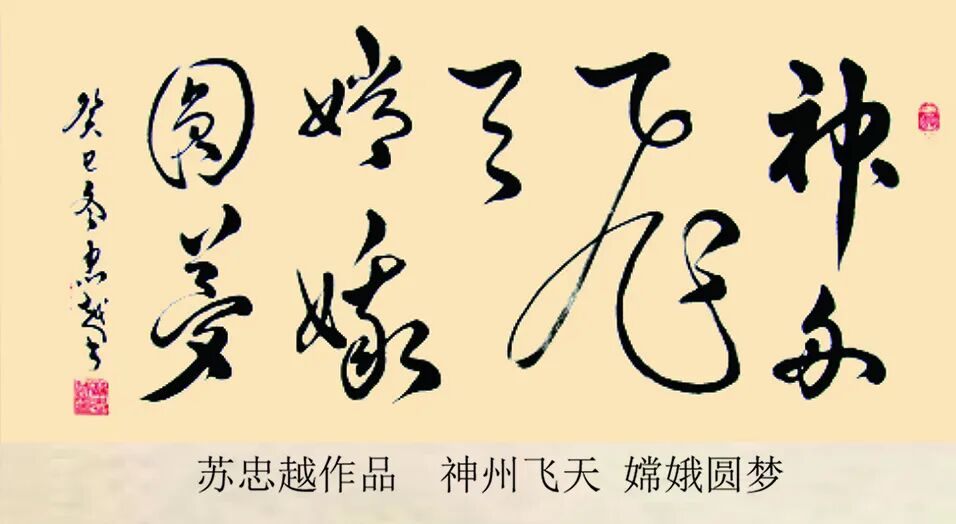 神舟
飛
天
嫦娥
圓夢
癸巳冬忠越书
苏忠越作品 神州飞天 嫦娥圆梦